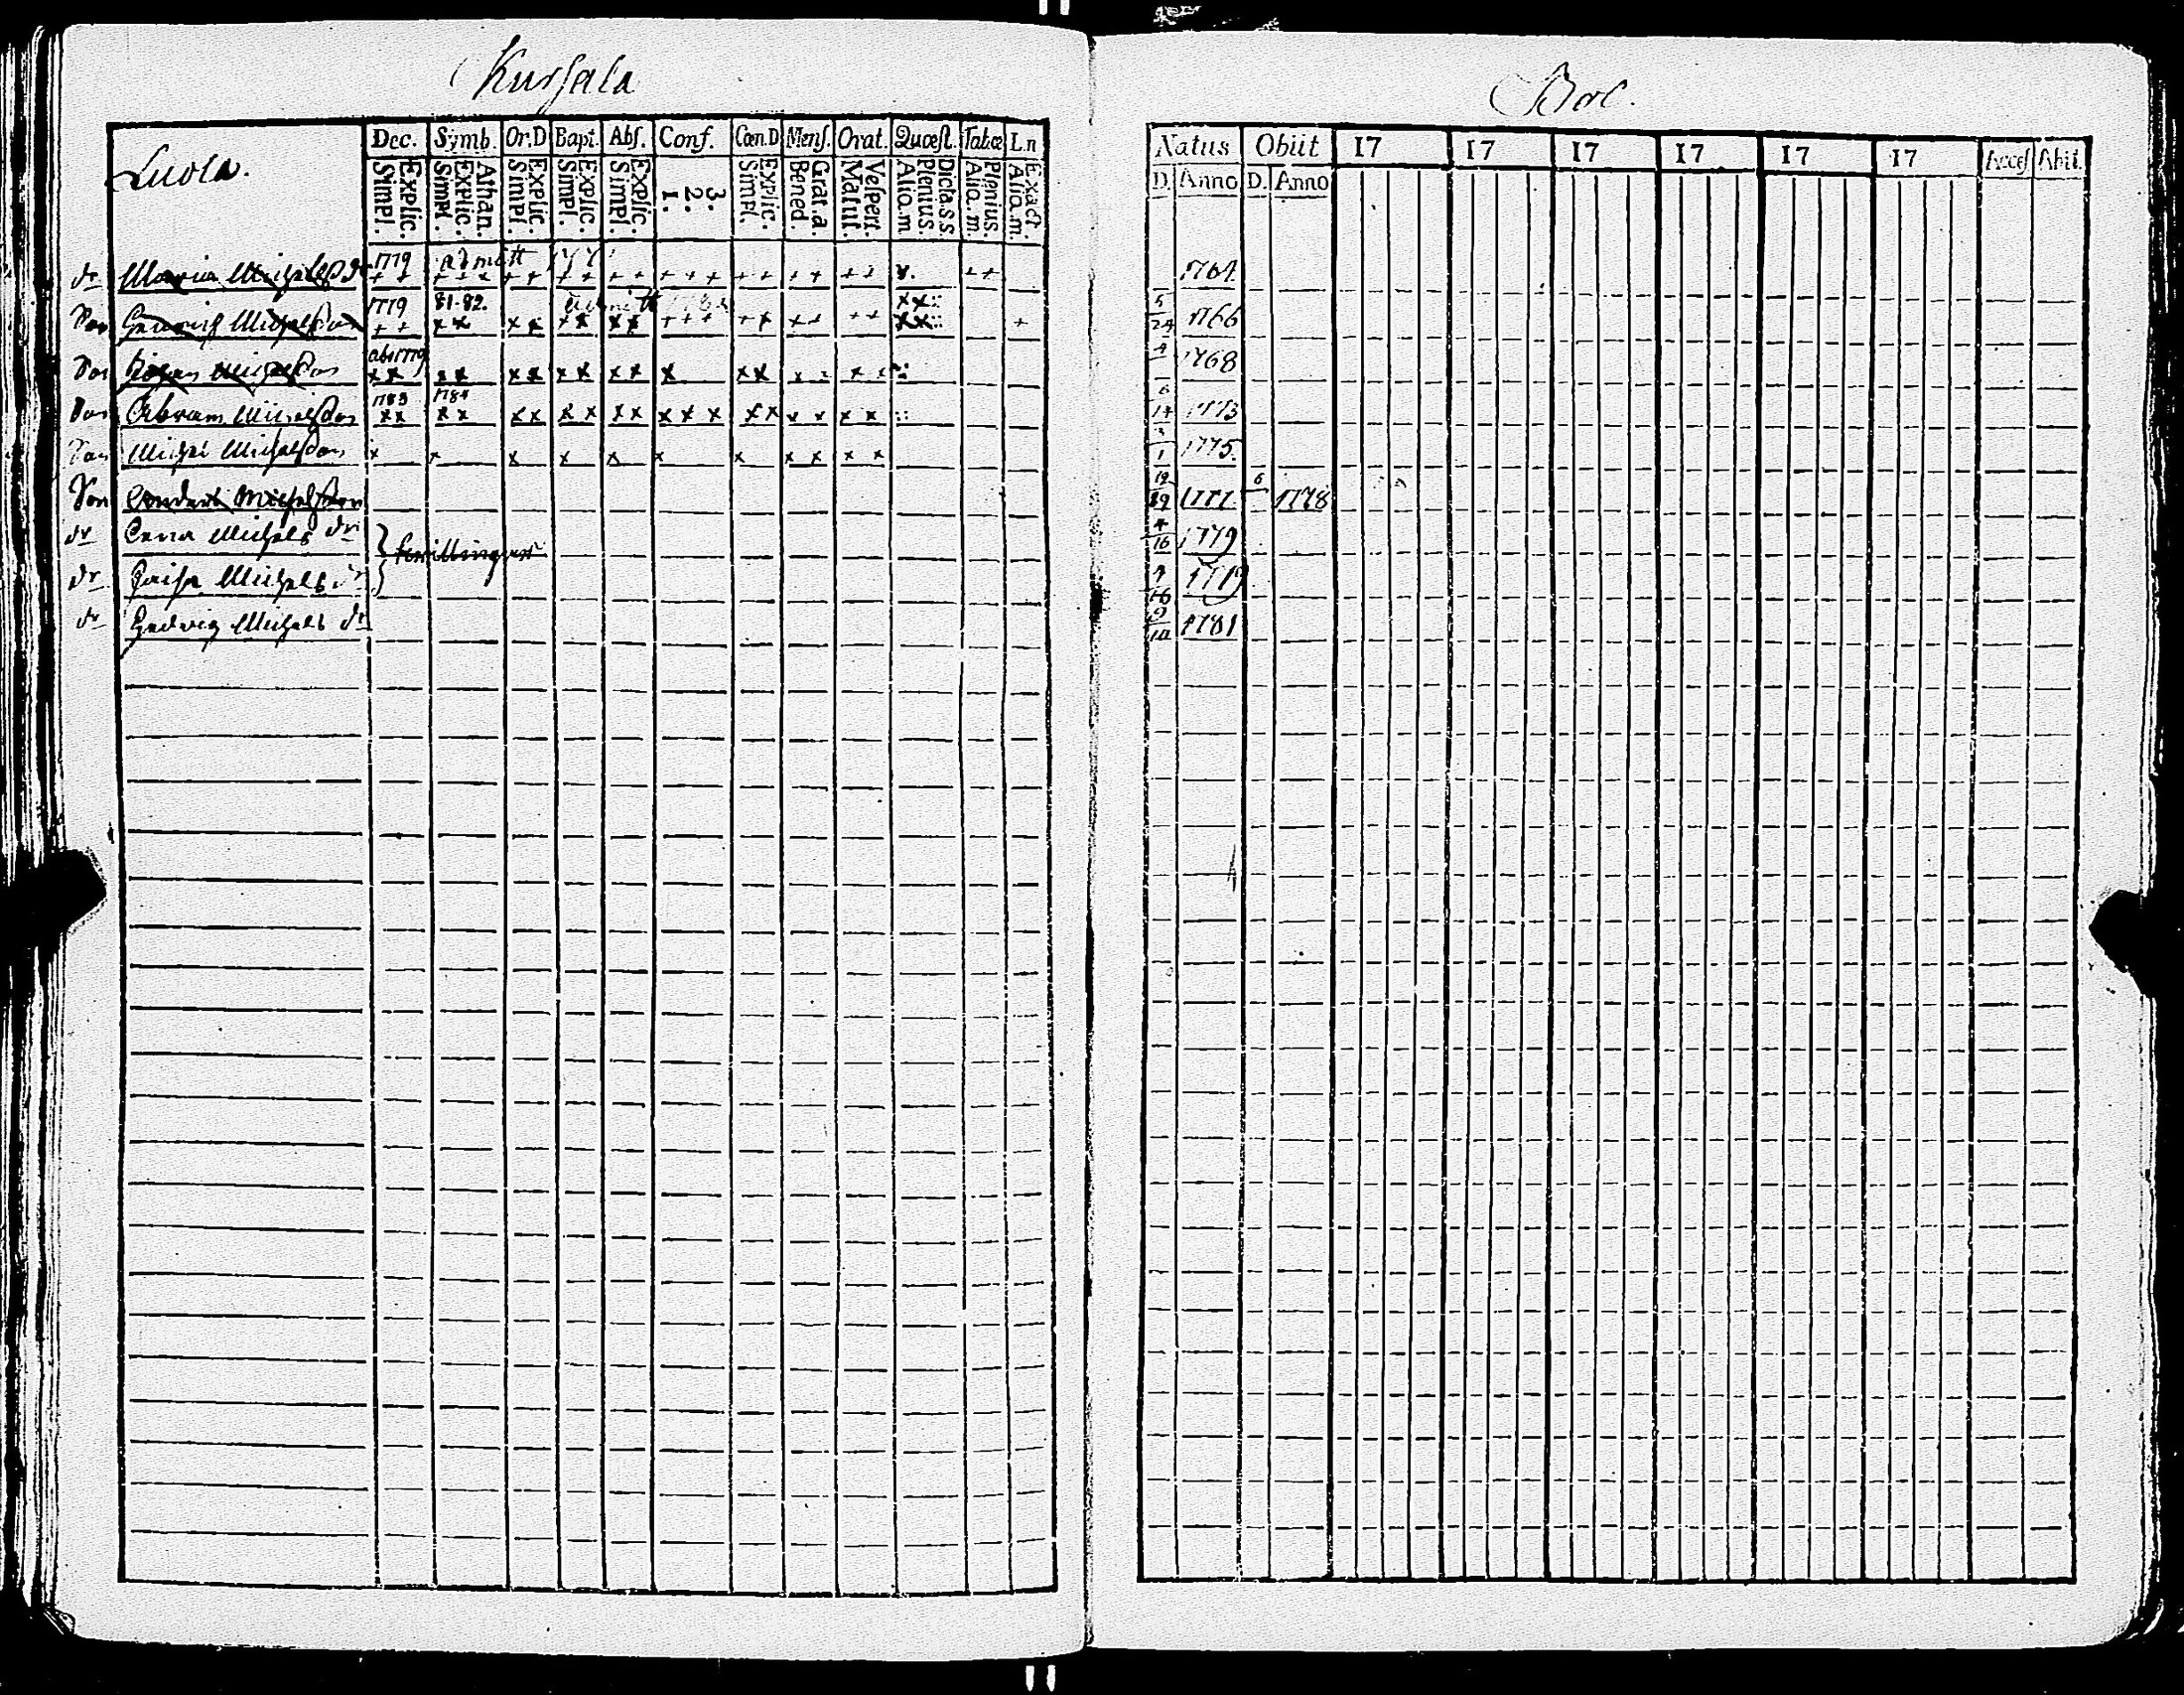 Kursala
Luola.
Dec. Symb. Or.D Bapt. Abs. Conf. Cœn.D Mens. Orat. Quæst. Tabœ Ln
Explic. Simpl. Athan. Explic. Simpl. Explic. Simpl. Explic. Simpl. Explic. Simpl. 3. 2. 1. Explic. Simpl. Grat.a. Bened. Vespert. Matut. Dicta.s.s Plenius. Alio.m Plenius. Alio.m. Exact. Alio.m.
1779 admitt
dr Maria Michelsdr + + + + x + + + + + + + + + + + + + + + ++
1779 81-82. admitt
Son Henrich Michelsson + + x x x x + x x x + + + + x x + + + xx:: xx:: +
abs 1779
Son Johan Michelsson x x x x x x x x x x x x x x x x x
1783 1784
Son Abram Michelsson x x x x x x x x x x x x x x x x x x x ::
Son Michel Michelsson x x x x x x x x x x x
Son Anders Michelsson
dr Anna Michels dr
} tvillingar
dr Caisa Michels dr
dr Hedvig Michels dr
Bol.
Natus Obiit 17 17 17 17 17 17 Acces Abit.
D. Anno D. Anno
1764
5/24 1766
4 1768
6/14 1773
3/1 1775.
12/29 1777. 6 1778
4/16 1779
4/16 1779
9/10 1781